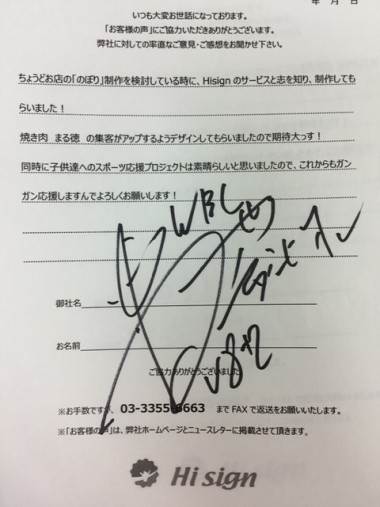 年　月　日
いつも大変お世話になっております。
「お客様の声」にご協力いただきありがとうございます。
弊社に対しての率直なご意見・ご感想をお聞かせ下さい。
ちょうどお店の「のぼり」制作を検討している時に、Hisign のサービスと志を知り、制作しても
らいました！
焼き肉　まる徳　の集客がアップするようデザインしてもらいましたので期待大っす！
同時に子供達へのスポーツ応援プロジェクトは素晴らしいと思いましたので、これからもガン
ガン応援しますんでよろしくお願いします！
WBC
御社名
お名前
ご協力ありがとうございました
※お手数ですが、03-3355-8663　まで FAX で返送をお願いいたします。
※「お客様の声」は、弊社ホームページとニュースレターに掲載させて頂きます。
Hi sign